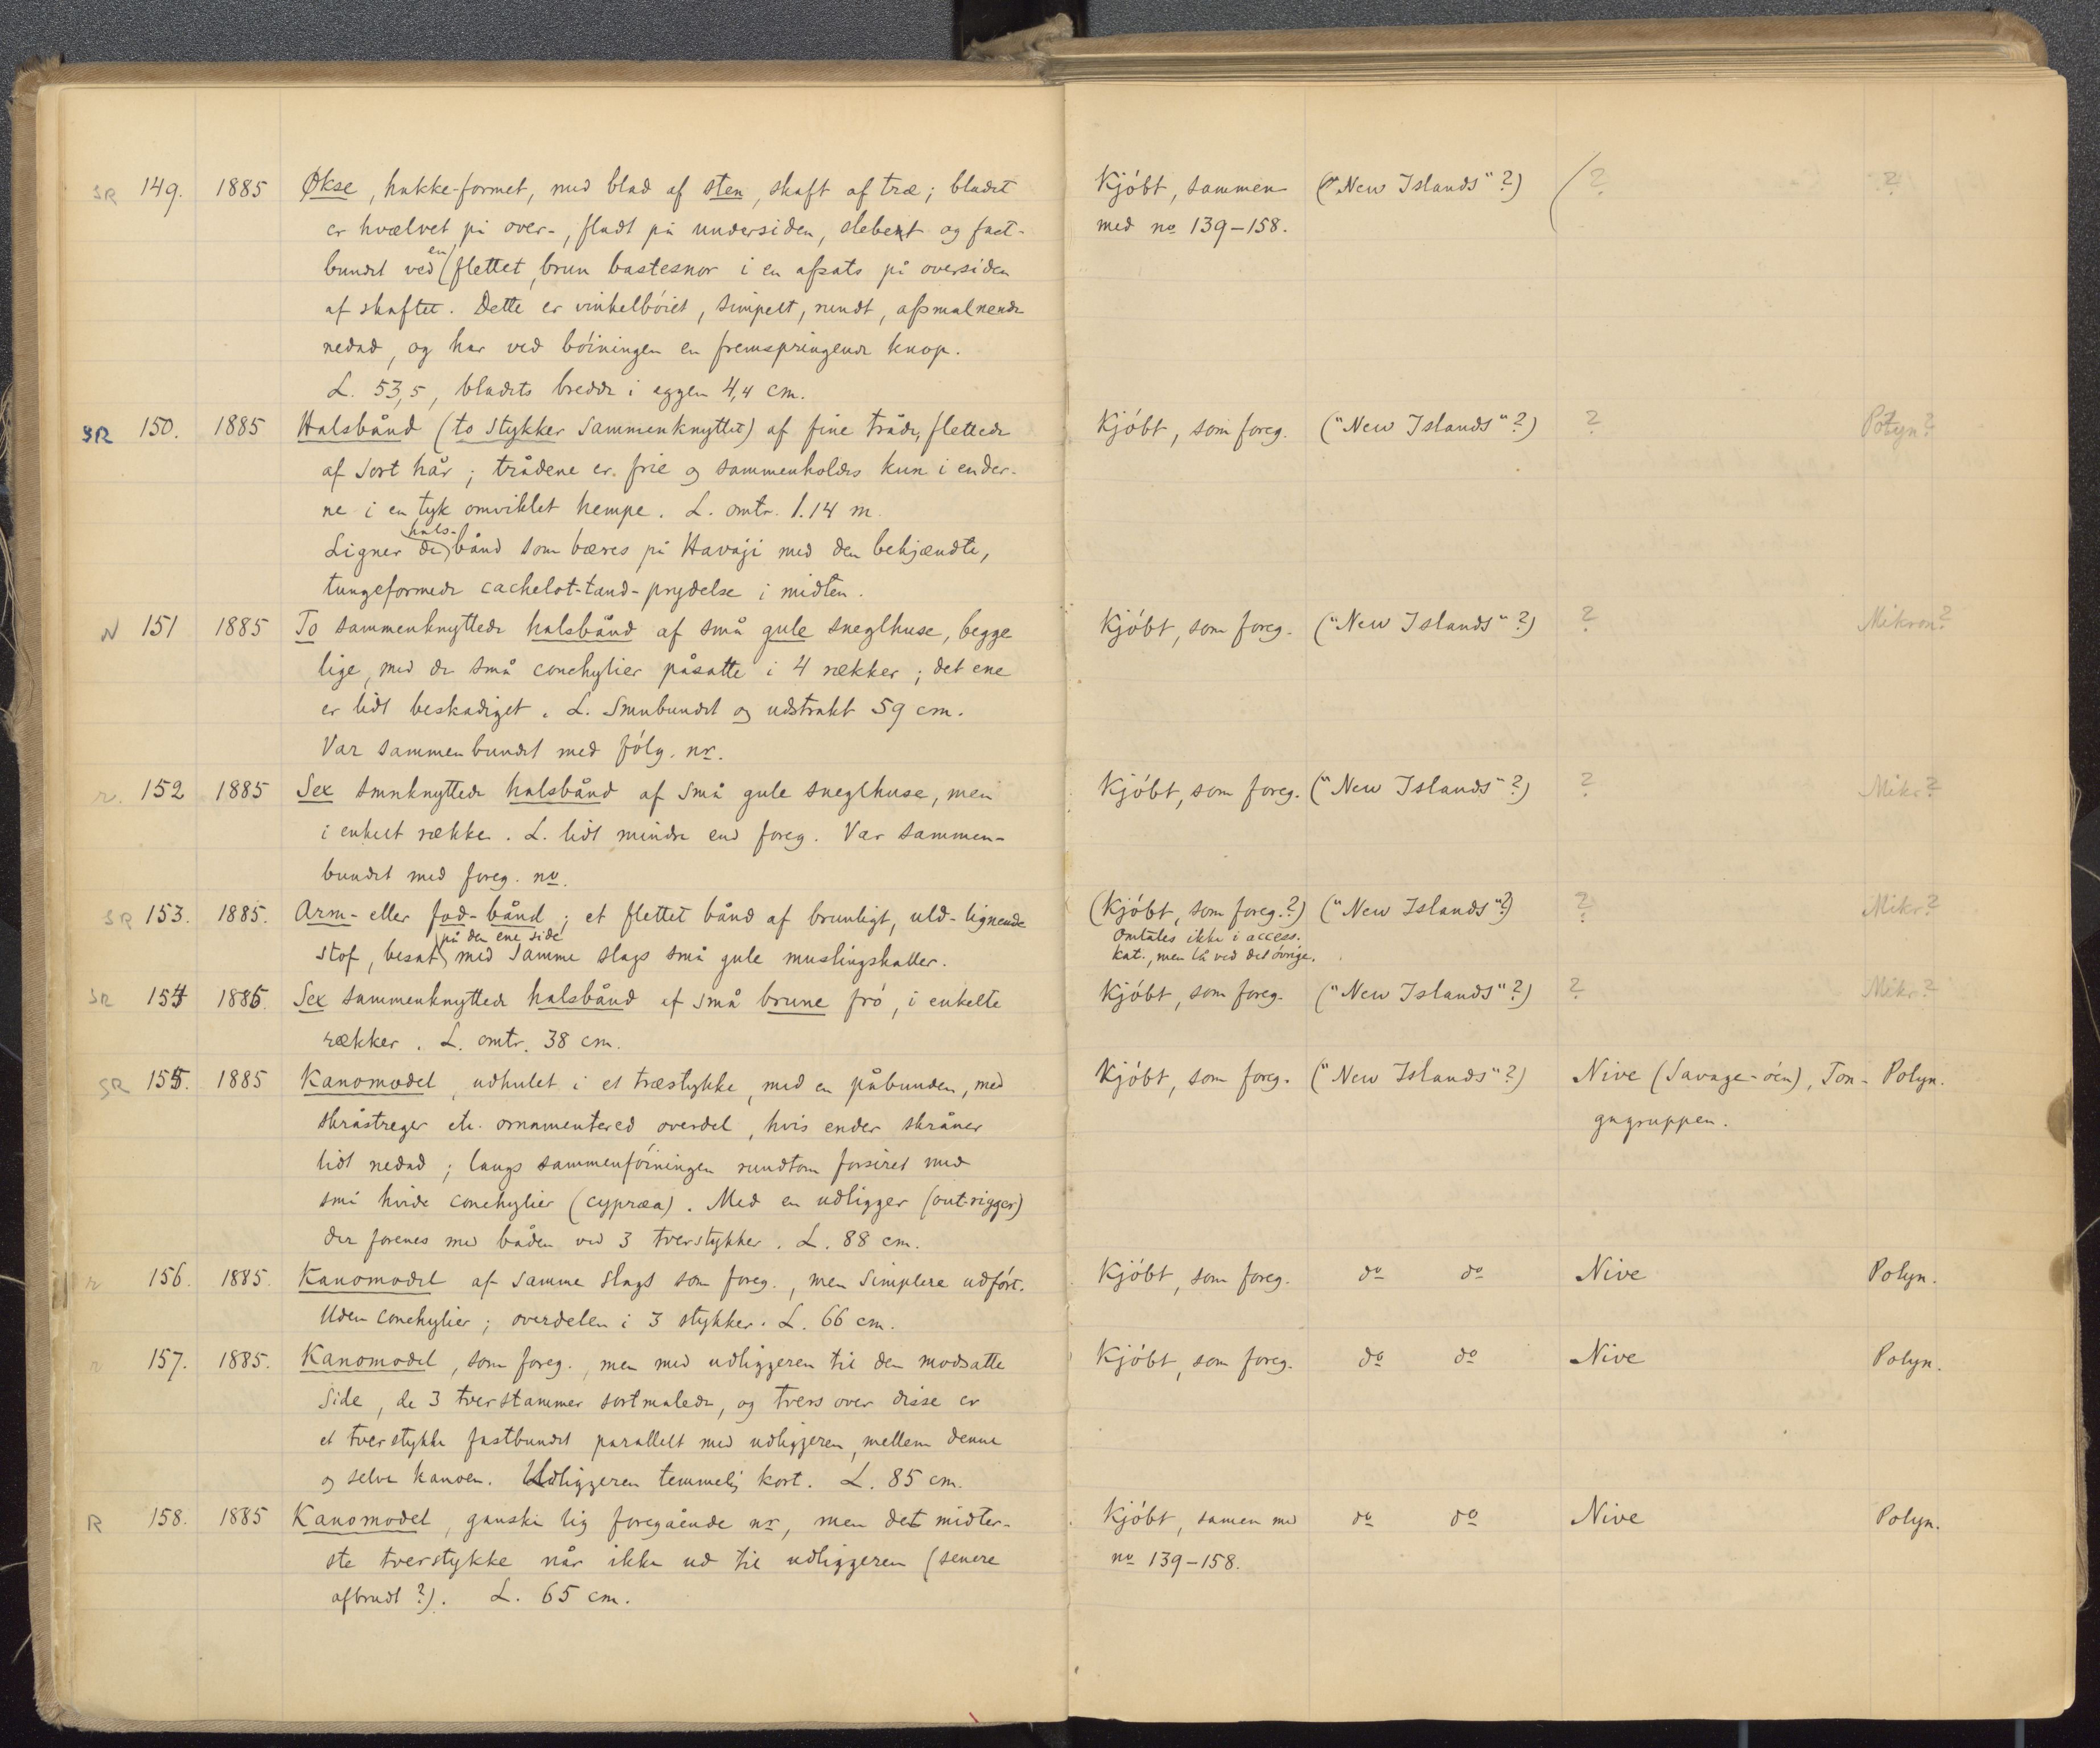 SR 149. 1885 Økse, hakke-formet, med blad af sten, skaft af træ; bladet Kjöbt, sammen ("New Islands"?) ( ? ?
er hvælvet på over-, fladt på undersiden, slebent og fast- med no 139-158.
bundet ved en flettet, brun bastesnor i en afsats på oversiden
af skaftet. Dette er vinkelböiet, simpelt, rundt, afsmalnende
nedad, og har ved böiningen en fremspringende knop.
L. 53,5, bladets bredde i eggen 4,4 cm.
SR 150. 1885 Halsbånd (to stykker sammenknyttet) af fine tråde, flettede Kjöbt, som foreg. ("New Islands"?) ? Polyn?
af sort hår; trådene er frie og sammenholdes kun i ender-
ne i en tyk omviklet hempe. L. omtr. 1.14 m.
Ligner de hals-bånd som bæres på Havaji med den bekjændte,
tungeformede cachelot-tand-prydelse i midten.
N 151 1885 To sammenknyttede halsbånd af små gule sneglhuse, begge Kjöbt, som foreg. ("New Islands"?) ? Mikron?
lige, med de små conchylier påsatte i 4 rækker; det ene
er lidt beskadiget. L. smnbundet og udstrakt 59 cm.
Var sammenbundet med fölg. nr.
r. 152 1885 Sex smnknyttede halsbånd af små gule sneglhuse, men Kjöbt, som foreg. ("New Islands"?) ? Mikr?
i enkelt række. L. lidt mindre end foreg. Var sammen-
bundet med foreg. no.
SR 153. 1885. Arm- eller fod-bånd; et flettet bånd af brunligt, uld-lignende (Kjöbt, som foreg.?) ("New Islands"?) ? Mikr?
stof, besat på den ene side med samme slags små gule muslingskaller. Omtales ikke i access.
kat., men lå ved det övrige.
SR 154 1885. Sex sammenknyttede halsbånd af små brune frö, i enkelte Kjöbt, som foreg. ("New Islands"?) ? Mikr?
rækker. L. omtr. 38 cm.
SR 155. 1885 Kanomodel, udhulet i et træstykke, med en påbunden, med Kjöbt, som foreg. ("New Islands"?) Nive (Savage-öen), Ton- Polyn.
skråstreger etc. ornamentered overdel, hvis ender skråner gagruppen.
lidt nedad; langs sammenföiningen rundtom forsiret med
små hvide conchylier (cypræa). Med en udligger (out-rigger)
der forenes med båden ved 3 tverstykker. L. 88 cm.
r 156. 1885. Kanomodel af samme slags som foreg., men simplere udfört. Kjöbt, som foreg. do do Nive Polyn.
Uden conchylier; overdelen i 3 stykker. L. 66 cm.
r 157. 1885. Kanomodel, som foreg., men med udliggeren til den modsatte Kjöbt, som foreg. do do Nive Polyn.
side, de 3 tverstammer sortmalede, og tvers over disse er
et tverstykke fastbundet parallelt med udliggeren, mellem denne
og selve kanoen. Udliggeren temmelig kort. L. 85 cm.
R 158. 1885 Kanomodel, ganske lig foregående nr, men det midter- Kjöbt, samen med do do Nive Polyn.
ste tverstykke når ikke ud til udliggeren (senere no 139-158.
afbrudt?). L. 65 cm.